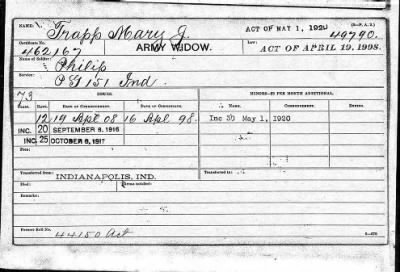 NAME: Trapp Mary J. ACT OF MAY 1, 1920 (S.-F. A. 2.)
Certificate No. 462167 ARMY WIDOW. 49790.
Name of Soldier: Philip Law: ACT OF APRIL 19, 1908.
Service: 151 Ind
73 ISSUE. MINORS—$2 PER MONTH ADDITIONAL.
CLASS. RATE. DATE OF COMMENCEMENT. DATE OF CERTIFICATE. NAME. COMMENCEMENT. ENDING.
12 19 Apl 08 16 Apl 98. Inc 30 May 1, 1920
INC. 20 SEPTEMBER 8, 1916
INC. 25 OCTOBER 6, 1917
From:
Transferred from: INDIANAPOLIS, IND. Transferred to:
Died: Payments terminated:
From:
Former Roll No. 44150 Act